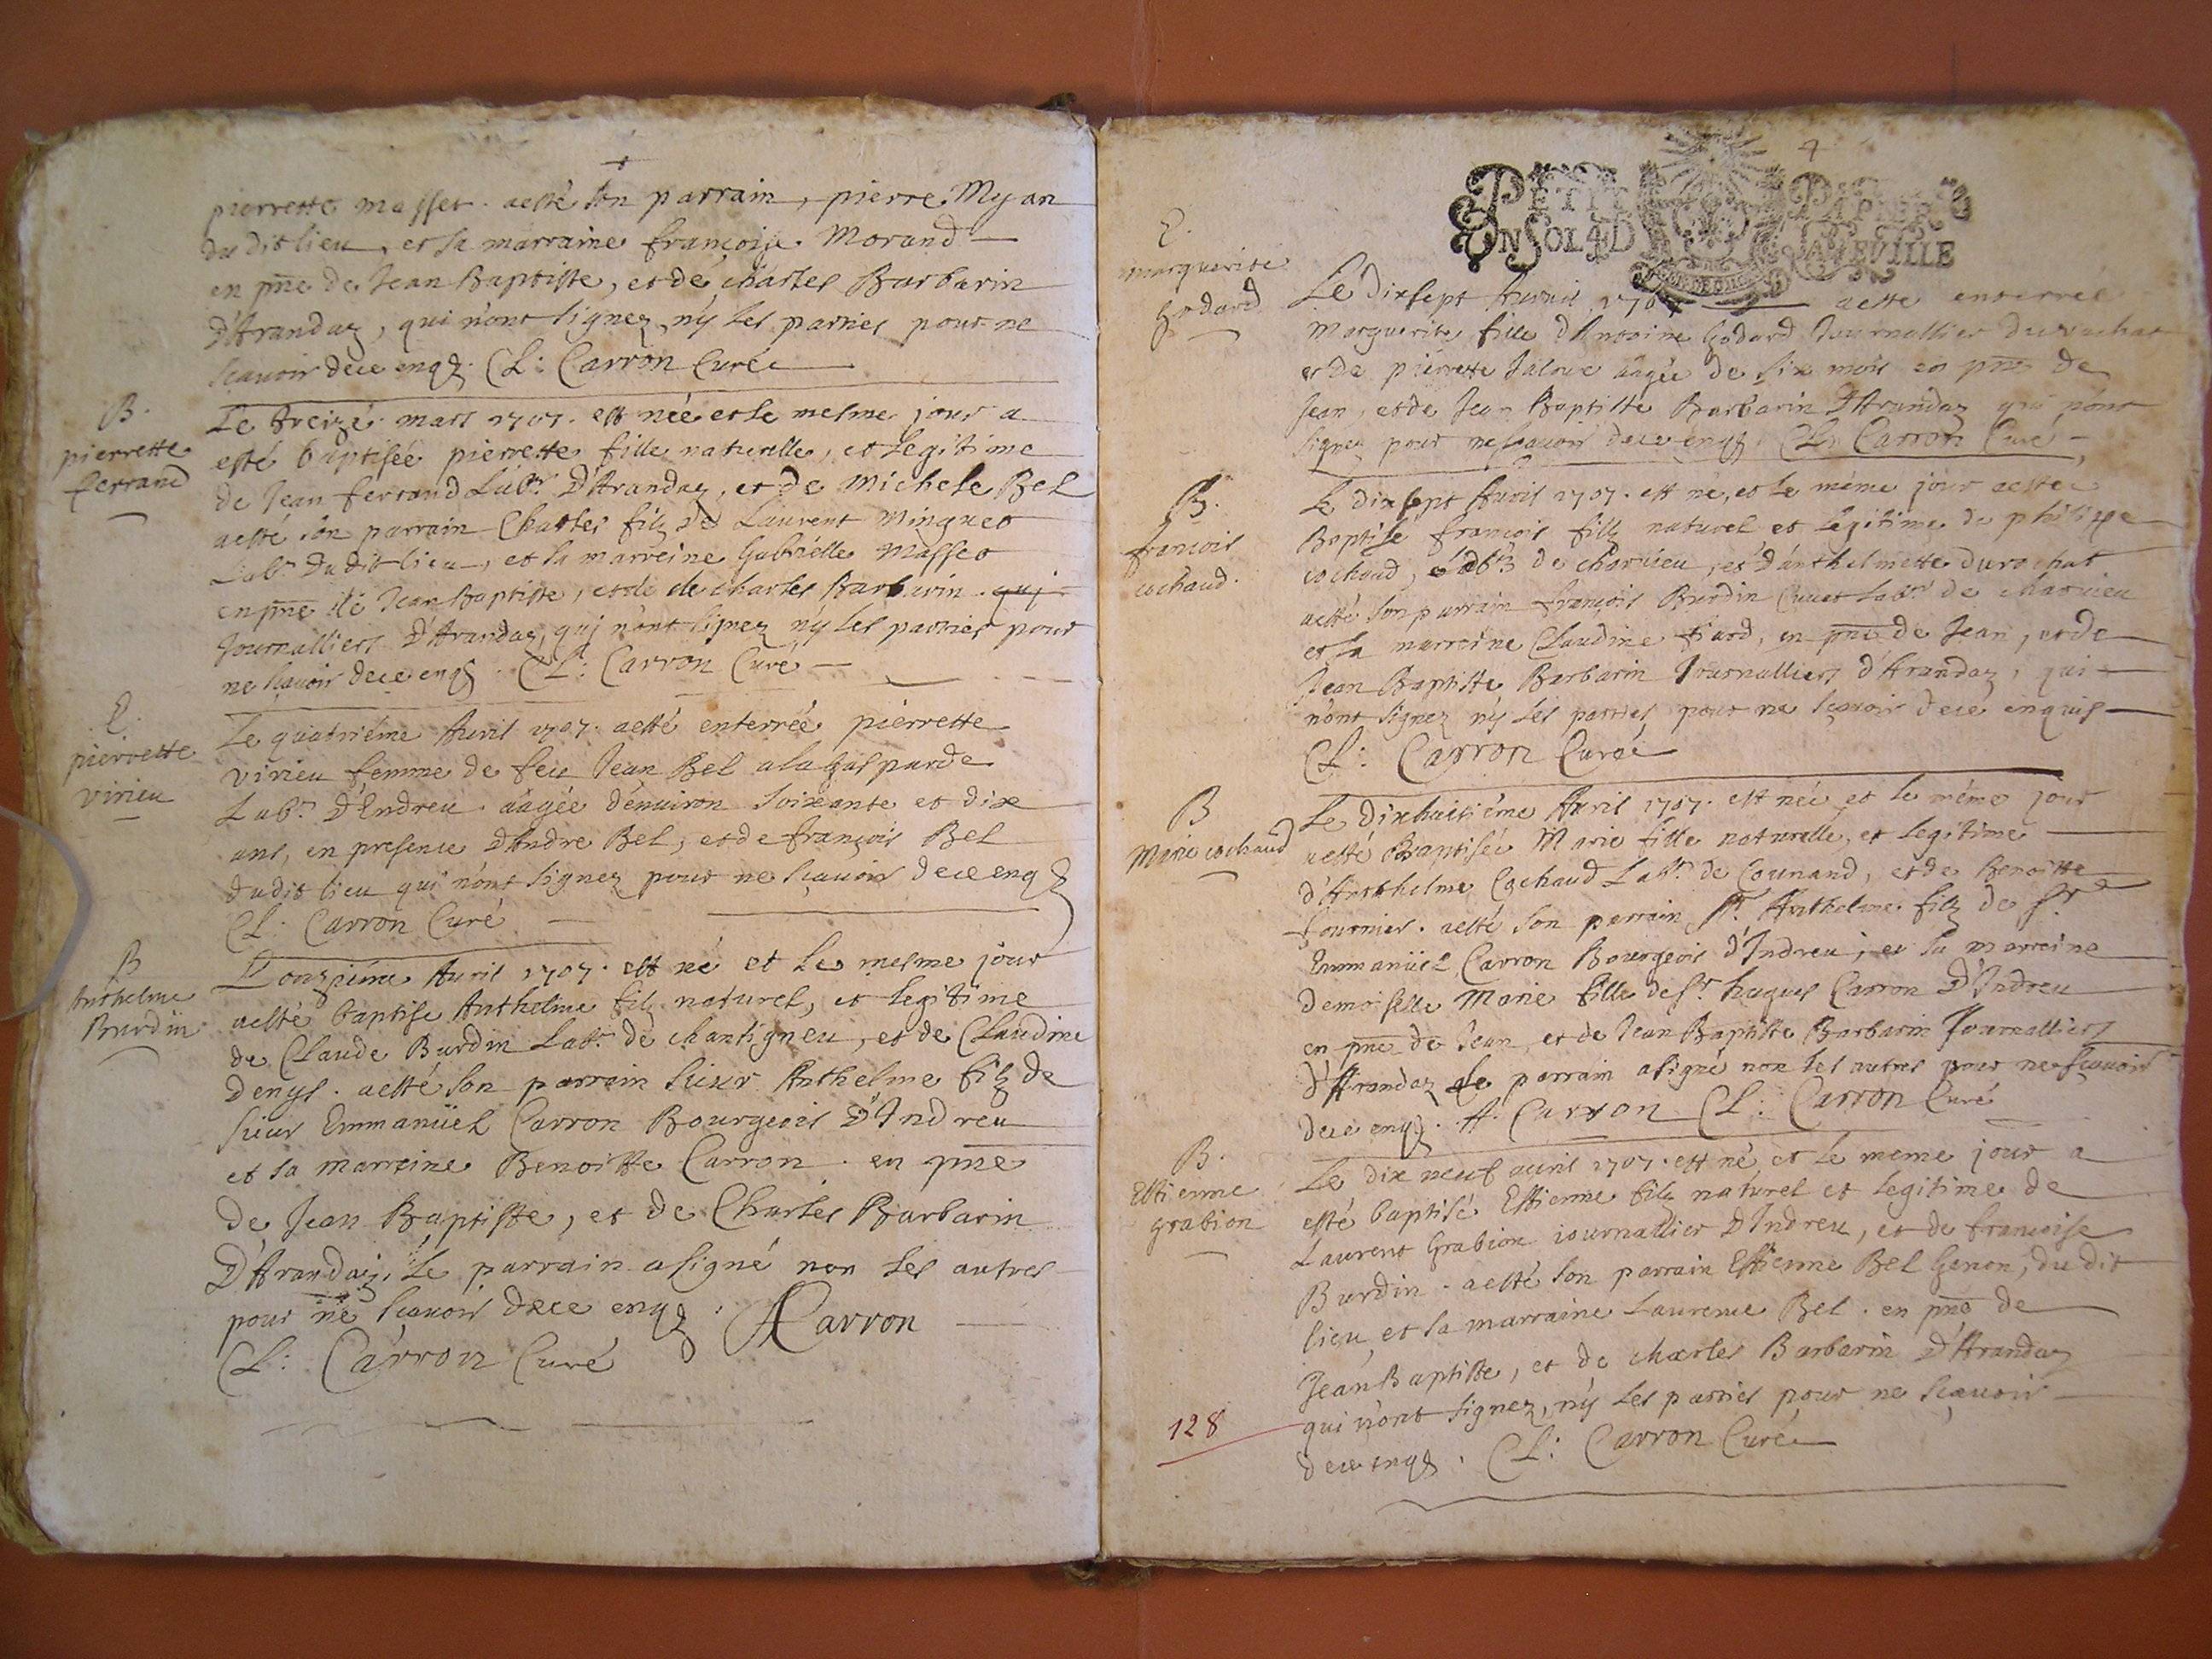 pierrette masset. aesté son parrain, pierre Myan
du dit lieu, et sa marraine françoise Morand
en pñe de Jean Baptiste, et de charles Barbarin
D'Arandaz, qui n'ont signez ny les parties pour ne
scavoir dece enqz. Cl: Carron Curé
B.
pierrette
ferrand
Le treizé mars 1707. est née et le mesme jour a
esté baptisée pierrette fille naturelle, et legitime
de Jean ferrand Labr. D'Arandaz, et de Michele Bel
aesté son parrain Charles filz de Laurent Minguet
Labr. du dit lieu, et sa marreine Gabriélle Masset
en pñe de Jean Baptiste, et de charles Barbarin
Journalliers D'Arandaz, qui n'ont signez ny les parties pour
ne scavoir dece enqz. Cl: Carron Curé
E.
pierrette
virieu
Le quatriéme Avril 1707. aesté enterrée pierrette
virieu femme de feu Jean Bel alagasparde
Labr. D'Endreu. aagée d'environ soixante et dix
ans, en presence D'Andre Bel, et de françois Bel
du dit lieu qui n'ont signez pour ne scavoir dece enqz
Cl: Carron Curé
B
Anthelme
Burdin
L'onziéme Avril 1707. est né et le mesme jour
aesté baptise Anthelme filz naturel, et legitime
de Claude Burdin Labr. de chantigneu, et de Claudine
Denys. aesté son parrain sieur Anthelme filz de
sieur Emmanüel Carron Bourgeois D'Indreu
et sa marreine Benoitte Carron. en pñe
de Jean Baptiste, et de Charles Barbarin
D'Arandaz, Le parrain a signé non les autres
pour ne scavoir dece enqz. ACarron
Cl: Carron Curé
4
PETIT PAPIER
UN SOL 4 D LA FEVILLE
E.
marguerite
godard
Le dixsept Avril 1707 aesté enterrel
Marguerite fille d'Antoine Godard Journallier
et de pierrette aagée de six mois en pñe de
Jean, et de Jean Baptiste Barbarin D'Arandaz qui n'ont
signez pour ne scavoir dece enqz. Cl: Carron Curé
B.
francois
cochaud.
Le dixsept Avril 1707. est né, et le méme jour aesté
Baptisé françois filz naturel et legitime de philippe
cochaud, Labr. de charvieu, et d'anthelmette durochat
aesté son parrain françois Burdin Labr. de charvieu
et sa marreine Claudine fiard, en pñe de Jean, et de
Jean Baptiste Barbarin Journalliers d'Arandaz, qui
n'ont signez ny les parties pour ne scavoir dece enquis
Cl: Carron Curé
B
Marie cochaud
Le dixhuitiéme Avril 1707. est née et le méme jour
aesté Baptisée Marie fille naturelle, et legitime
d'Anthelme Cochaud Labr. de Counand, et de Benoitte
fournier. aesté son parrain Sr. Anthelme filz de Sr.
Emmanüel Carron Bourgeois d'Indreu, et sa marreine
Demoiselle Marie fille de Sr. hugues Carron D'Indreu
en pñe de Jean, et de Jean Baptiste Barbarin Journalliers
d'Arandaz Le parrain a signé non les autres pour ne scavoir
dece enqz. A. Carron Cl: Carron Curé
B.
Estienne
grabion
Le dix neuf avril 1707. est né, et le meme jour a
esté baptisé Estienne filz naturel et legitime de
Laurent Grabion journallier D'Indreu, et de francoise
Burdin. aesté son parrain Estienne Bel Genon, du dit
lieu, et sa marraine Laurence Bel. en pñe de
Jean Baptiste, et de charles Barbarin D'Arandaz
qui n'ont signez, ny les parties pour ne scavoir
dece enqz. Cl: Carron Curé
128